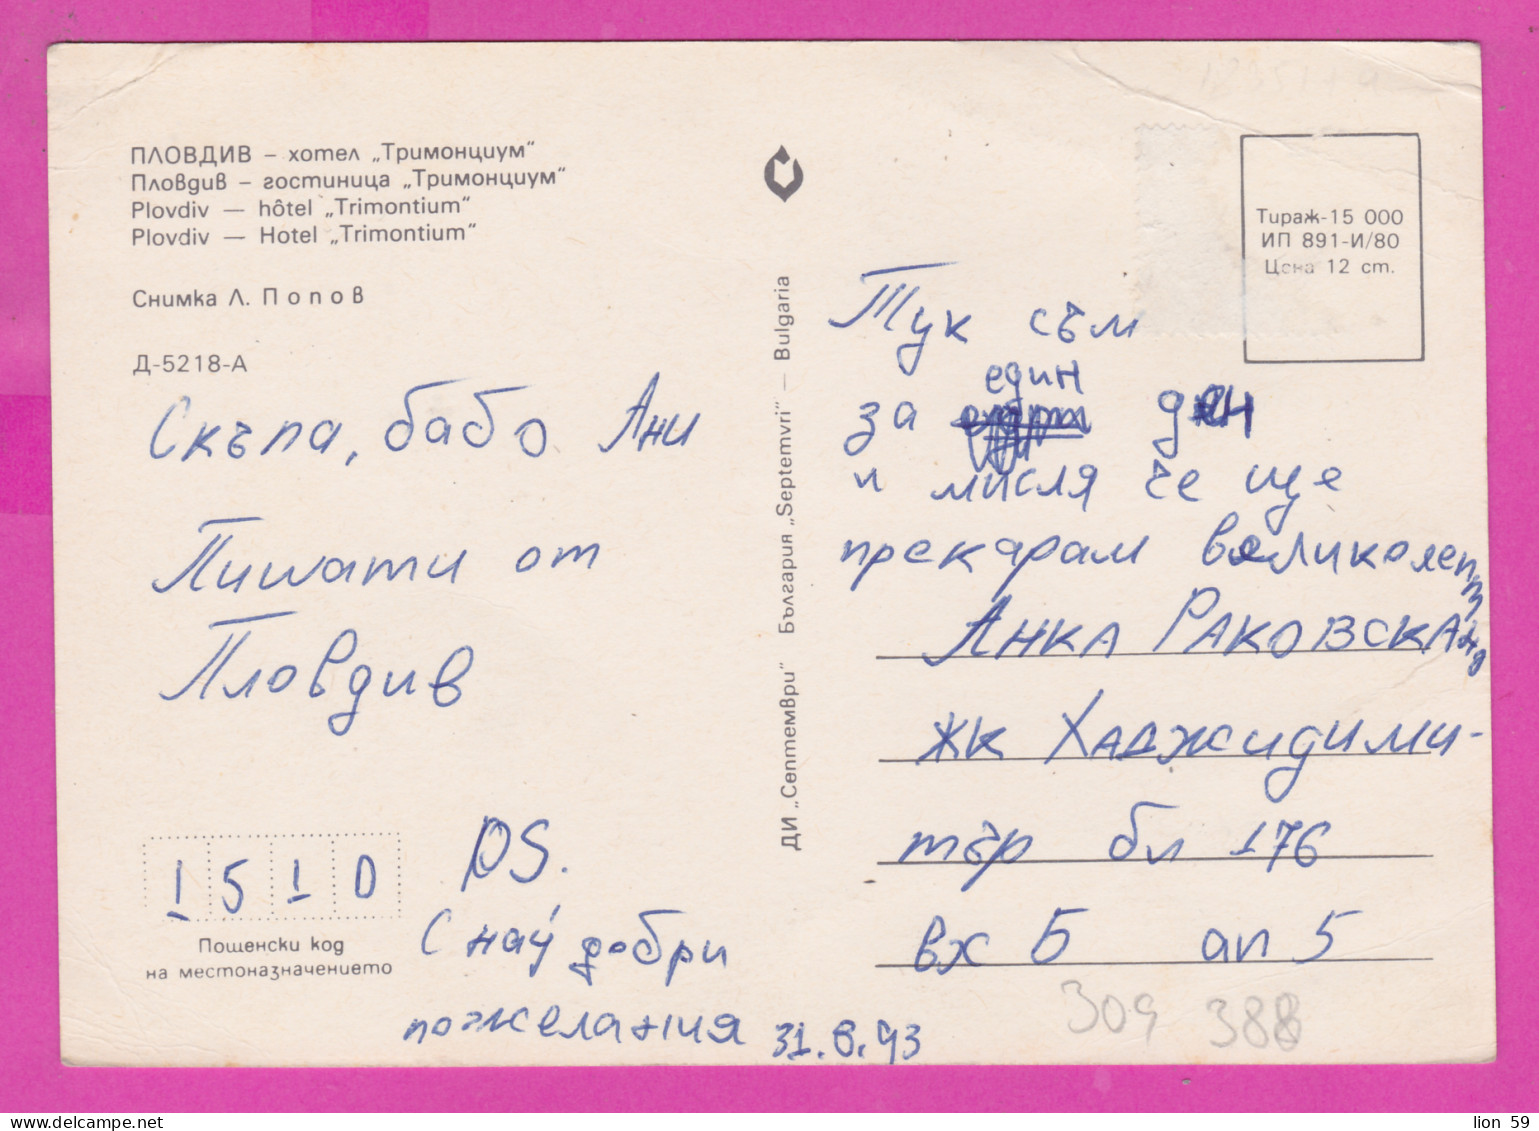 ПЛОВДИВ – хотел „Тримонциум“
Пловдив – гостиница „Тримонциум“
Plovdiv — hôtel „Trimontium“
Plovdiv — Hotel „Trimontium“
Снимка Л. Попов
Д-5218-А
Скъпа, бабо Ани
Пишати от
Пловдив
PS.
С най добри
пожелания 31.8.93
1510
Пощенски код
на местоназначението
ДИ „Септември“ България „Septemvri“ — Bulgaria
Тираж-15 000
ИП 891-И/80
Цена 12 ст.
Тук съм
за един ден
и мисля че ще
прекарам великолепно
Анка Раковска
жк Хаджидими-
тър бл 176
вх Б ап 5
309 388
lion 59